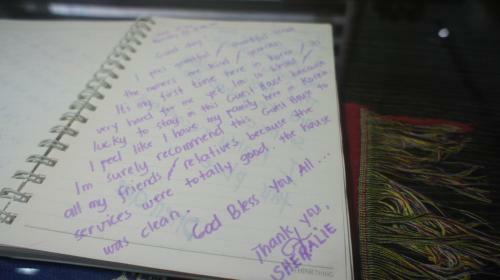 Good day,
I feel grateful / thankful
the owners are kind / generous.
It's my first time here in Korea / it's
very hard for me yet I'm so blessed /
lucky to stay in this Guest House because
I feel like I have my family here in Korea
Im surely recommend this Guest House to
all my friends / relatives because the
services were totally good. the house
was clean.
God Bless You All ...
Thank you,
SHERALIE